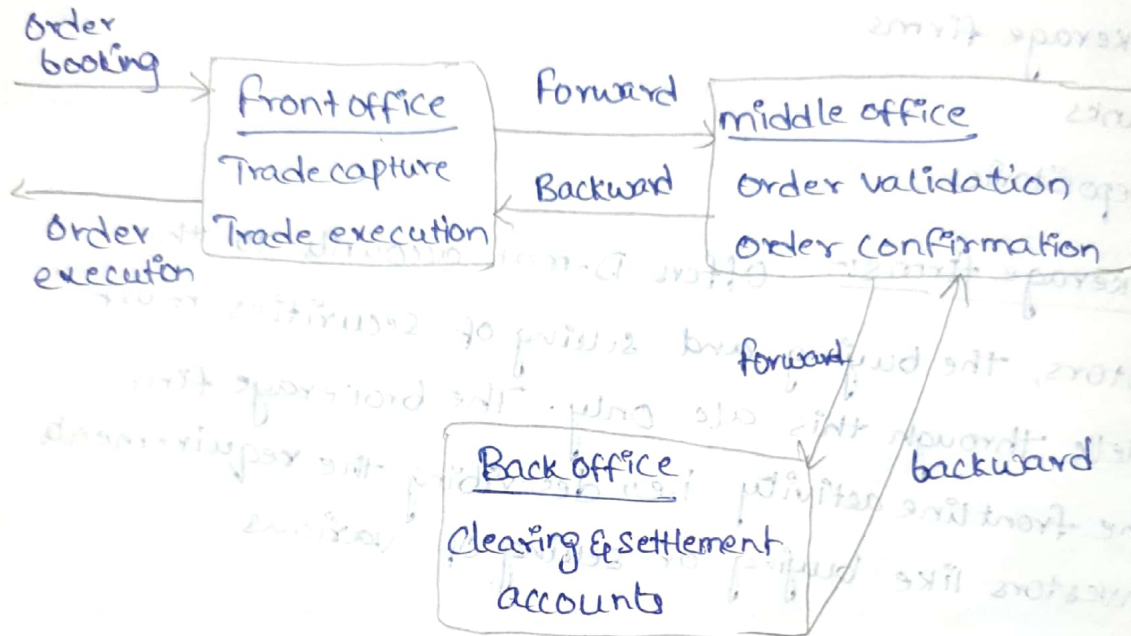 Order
booking
Front office
Trade capture
Trade execution
Order
execution
Forward
Backward
middle office
Order validation
Order confirmation
forward
backward
Back office
Clearing & settlement
accounts